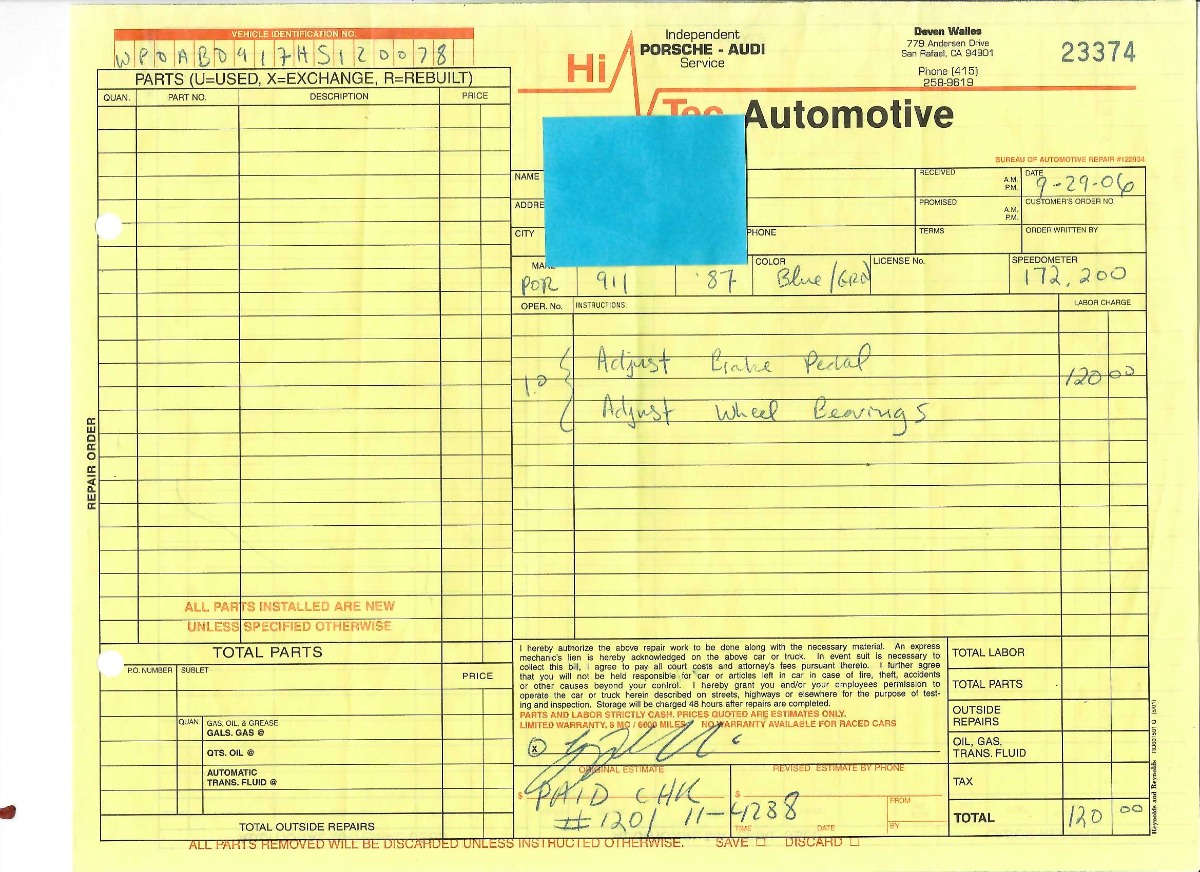 VEHICLE IDENTIFICATION NO.
WPOAB0917HS120078
PARTS (U=USED, X=EXCHANGE, R=REBUILT)
QUAN. PART NO. DESCRIPTION PRICE
Hi Tec Automotive
Independent
PORSCHE - AUDI
Service
Deven Walles
779 Andersen Drive
San Rafael, CA 94901
Phone (415)
258-9619
23374
BUREAU OF AUTOMOTIVE REPAIR #122934
NAME RECEIVED A.M. P.M. DATE 9-29-06
ADDRE PROMISED A.M. P.M. CUSTOMER'S ORDER NO.
CITY PHONE TERMS ORDER WRITTEN BY
MAKE COLOR LICENSE No. SPEEDOMETER
POR 911 '87 Blue/GRD 172,200
OPER. No. INSTRUCTIONS: LABOR CHARGE
Adjust Brake Pedal
1.0 120 00
Adjust Wheel Bearings
REPAIR ORDER
ALL PARTS INSTALLED ARE NEW
UNLESS SPECIFIED OTHERWISE
TOTAL PARTS
P.O. NUMBER SUBLET PRICE
QUAN. GAS, OIL, & GREASE
GALS. GAS @
QTS. OIL @
AUTOMATIC
TRANS. FLUID @
TOTAL OUTSIDE REPAIRS
I hereby authorize the above repair work to be done along with the necessary material. An express
mechanic's lien is hereby acknowledged on the above car or truck. In event suit is necessary to
collect this bill, I agree to pay all court costs and attorney's fees pursuant thereto. I further agree
that you will not be held responsible for car or articles left in car in case of fire, theft, accidents
or other causes beyond your control. I hereby grant you and/or your employees permission to
operate the car or truck herein described on streets, highways or elsewhere for the purpose of test-
ing and inspection. Storage will be charged 48 hours after repairs are completed.
PARTS AND LABOR STRICTLY CASH. PRICES QUOTED ARE ESTIMATES ONLY.
LIMITED WARRANTY, 6 MO / 6000 MILES. NO WARRANTY AVAILABLE FOR RACED CARS
X
ORIGINAL ESTIMATE REVISED ESTIMATE BY PHONE
$ PAID CHK $ FROM
#1201 11-4288
TIME DATE BY
TOTAL LABOR
TOTAL PARTS
OUTSIDE
REPAIRS
OIL, GAS,
TRANS. FLUID
TAX
TOTAL 120 00
ALL PARTS REMOVED WILL BE DISCARDED UNLESS INSTRUCTED OTHERWISE. SAVE DISCARD
Reynolds and Reynolds